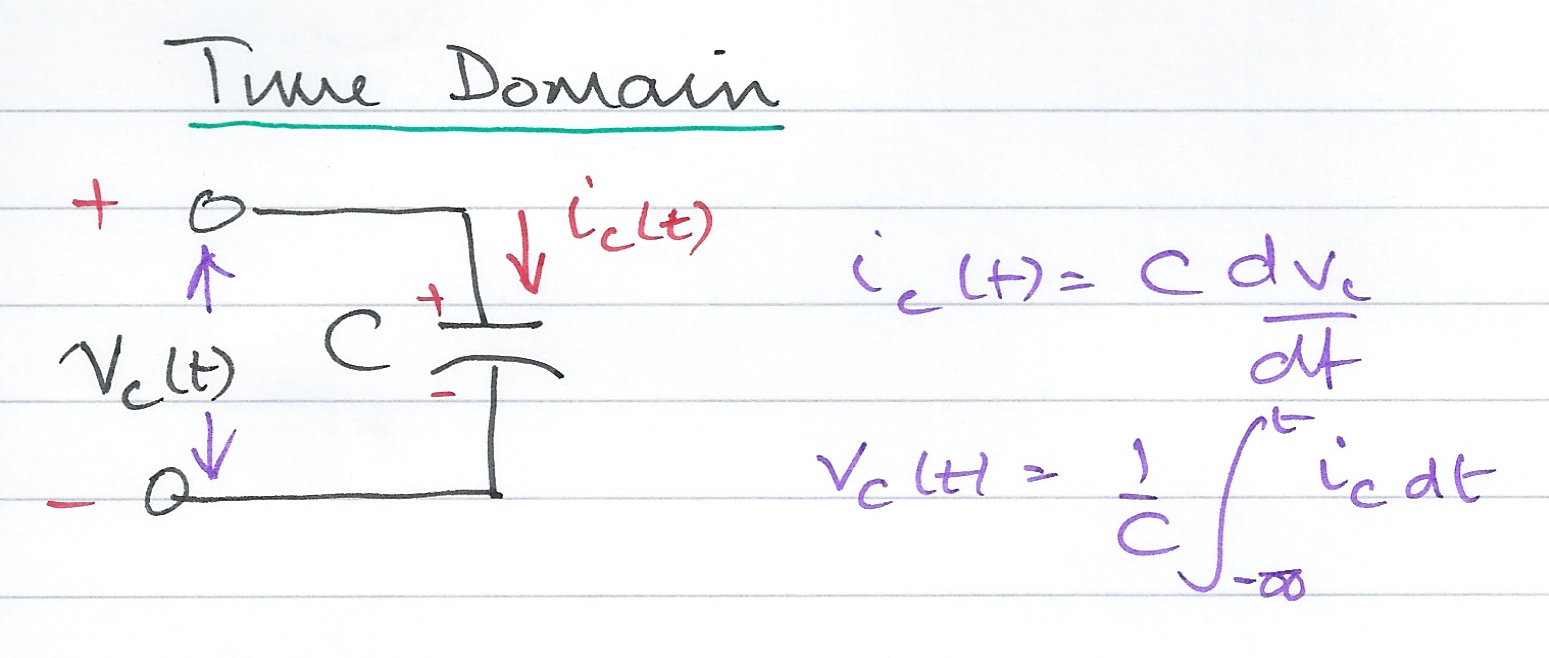 Time Domain
+ i_c(t)
+
i_c(t) = C dv_c/dt
C
v_c(t)
-
v_c(t) = 1/C ∫_{-∞}^{t} i_c dt
-